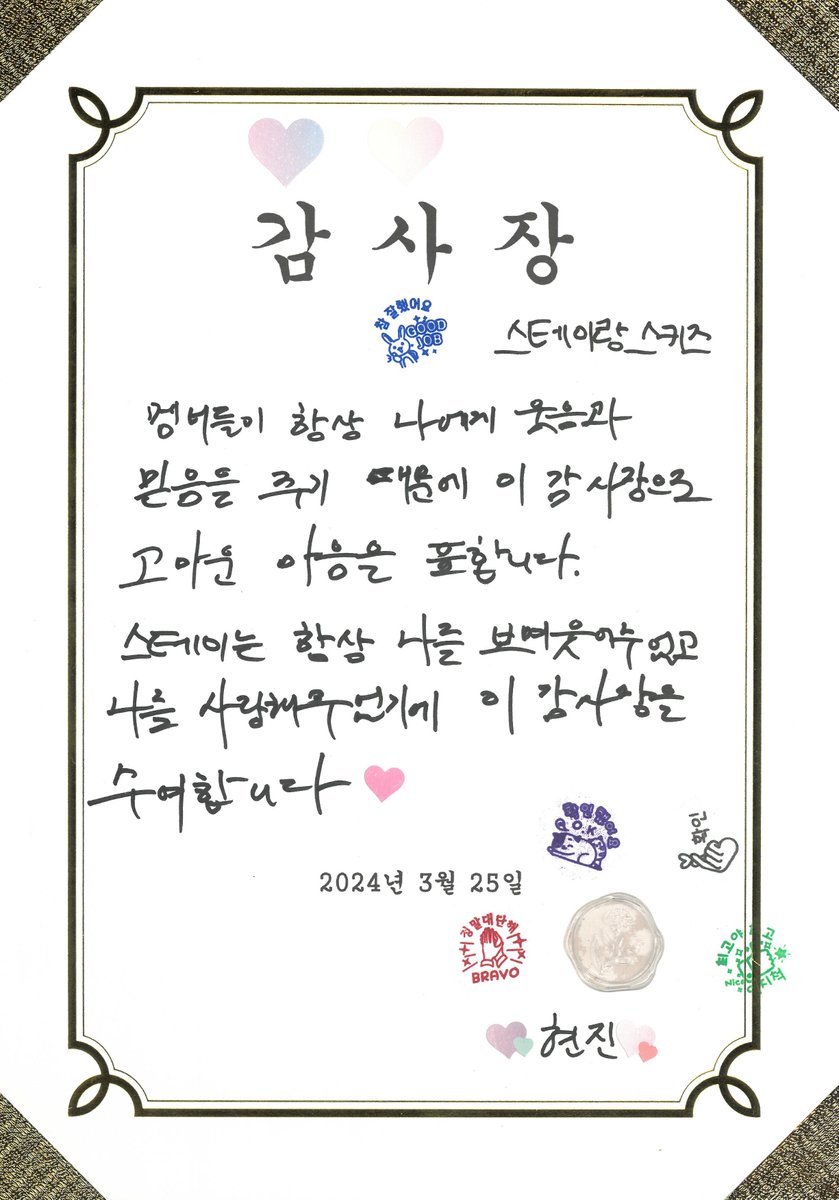 감사장
참 잘했어요
GOOD
JOB
스테이랑 스키즈
멤버들이 항상 나에게 웃음과
믿음을 주기 때문에 이 감사장으로
고마운 마음을 표합니다.
스테이는 항상 나를 보며 웃어주었고
나를 사랑해주었기에 이 감사장을
수여합니다
확인
2024년 3월 25일
정말 대단해
BRAVO
최고야
Nice
현진